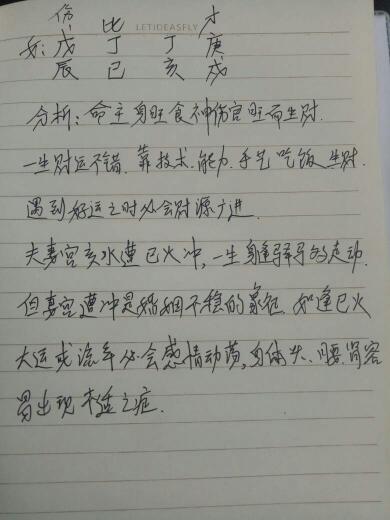 LETIDEASFLY
伤 比 才
女: 戊 丁 丁 庚
辰 巳 亥 戌
分析: 命主身旺食神伤官旺而生财.
一生财运不错. 靠技术. 能力. 手艺吃饭. 生财.
遇到好运之时必会财源广进.
夫妻宫亥水遭巳火冲, 一生身逢驿马多走动.
但妻宫遭冲是婚姻不稳的象征. 如逢巳火
大运或流年必会感情动荡, 身体头、腰、肾容
易出现不适之症.